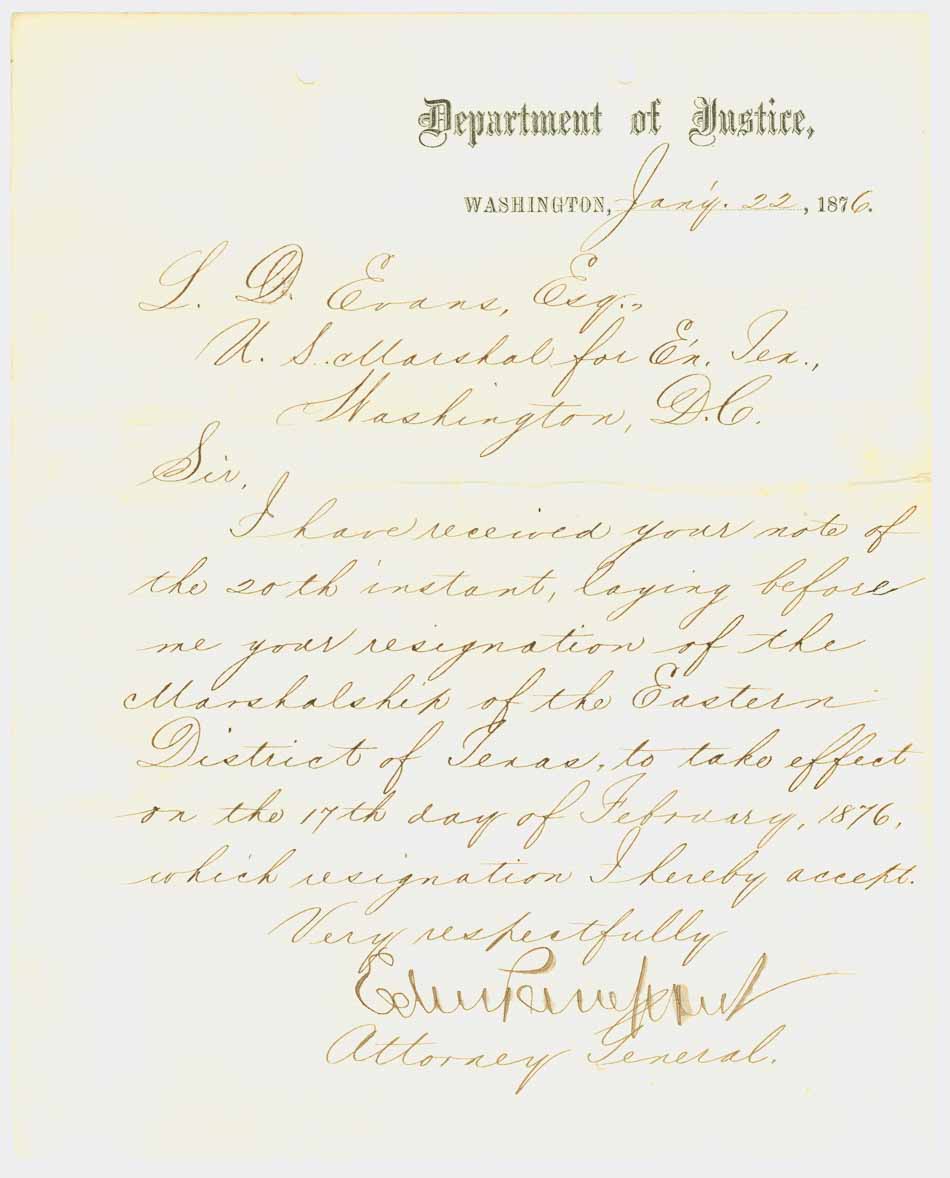 Department of Justice,
WASHINGTON, Jan'y. 22, 1876.
L. D. Evans, Esq.,
U. S. Marshal for E'n. Tex.,
Washington, D.C.
Sir,
I have received your note of
the 20th instant, laying before
me your resignation of the
Marshalship of the Eastern
District of Texas, to take effect
on the 17th day of February, 1876,
which resignation I hereby accept.
Very respectfully
Edwards Pierrepont
Attorney General.